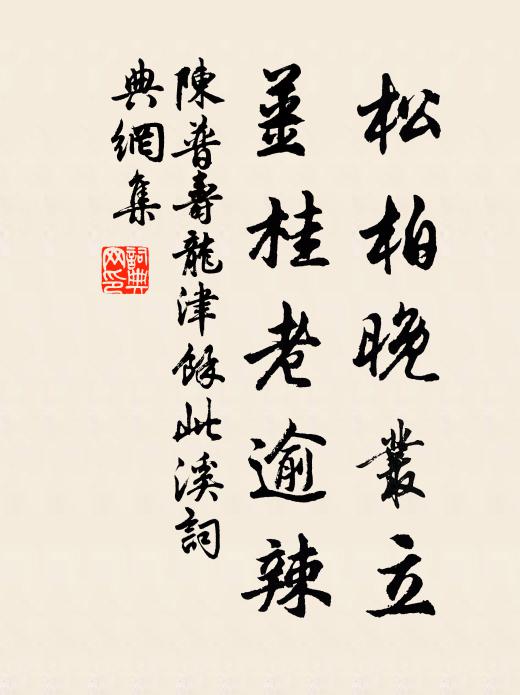 松柏晚叢立
薑桂老逾辣
陳普壽龍津餘此溪詞
典網集
詞典網印